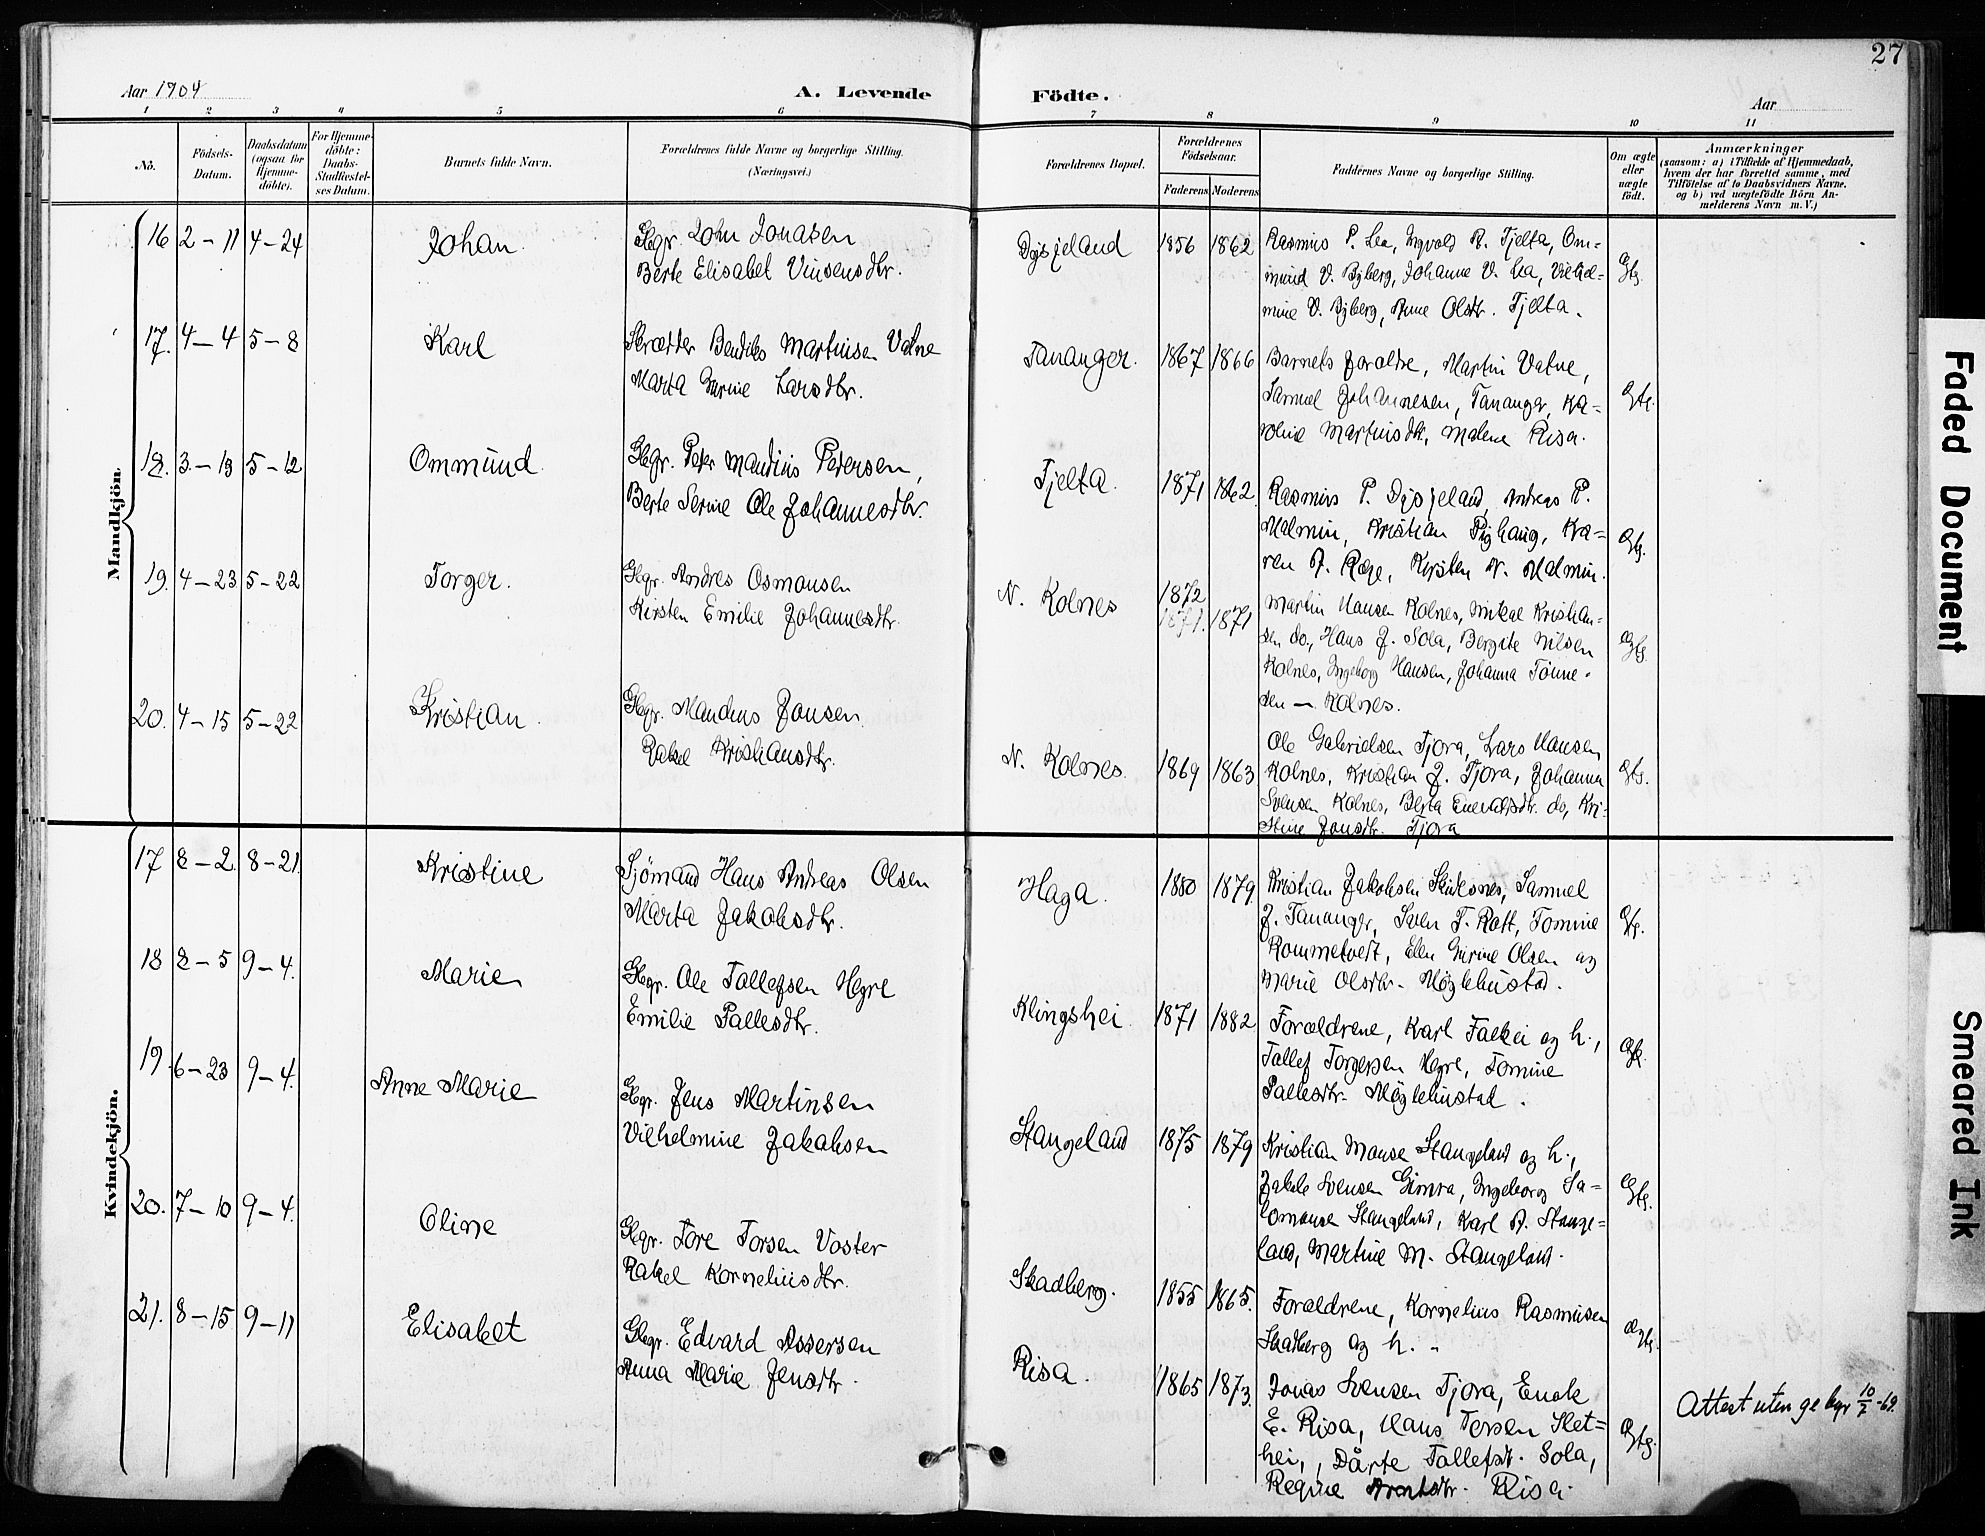 27
Aar 1904
A. Levende Födte.
Aar
1 2 3 4 5 6 7 8 9 10 11
No.
Födsels-Datum.
Daabsdatum (ogsaa for Hjemme-döbte).
For Hjemme-döbte: Daabs-Stadfæstel-ses Datum.
Barnets fulde Navn.
Forældrenes fulde Navne og borgerlige Stilling. (Næringsvei.)
Forældrenes Bopæl.
Forældrenes Födselsaar.
Faderens Moderens
Faddernes Navne og borgerlige Stilling.
Om ægte eller uægte födt.
Anmærkninger
(saasom: a) i Tilfælde af Hjemmedaab,
hvem der har forrettet samme, med
Tilföielse af to Daabsvidners Navne,
og b) ved uægtefödte Börn An-
melderens Navn m. V.)
Mandkjön.
16 2-11 4-24 Johan.
Gbgr. John Jonasen
Berte Elisabet Vinsensdtr.
Dysjeland 1856 1862
Rasmus P. Lea, Ingvald R. Tjelta, Om=
mund V. Byberg, Johanne V. Lea, Vilhel=
mine V. Byberg, Anne Olsdtr. Tjelta.
Egte.
17. 4-4 5-8 Karl
Skrædder Bendiks Martinsen Vatne
Marta Gurine Larsdtr.
Tananger. 1867 1866
Barnets Foraldre, Martin Vatne,
Samuel Johannesen, Tananger, Ka=
roline Martinsdtr, Malene Risa.
Egte.
18. 3-13 5-12 Ommund.
Gbgr. Peter Mandius Pedersen,
Berte Serine Ole Johannesdtr.
Tjelta. 1871 1862
Rasmus P. Dysjeland, Andreas P.
Malmin, Kristian Myhaug, Ka=
ren A. Rege, Kirsten N. Malmin.
Egte.
19. 4-23 5-22 Torger.
Gbgr. Andres Osmonsen
Kirsten Emilie Johannesdtr.
N. Kolnes 1872
1871. 1871
Martin Hansen Kolnes, Mikal Kristian=
sen do, Hans J. Sola, Bergite Nilsen
Kolnes, Ingeborg Hansen, Johanna Tönne-
sen — Kolnes.
Egte.
20. 4-15 5-22 Kristian.
Gbgr. Mandius Jonsen
Rakel Kristiansdtr.
N. Kolnes. 1869 1863
Ole Gabrielsen Tjora, Lars Hansen
Kolnes, Kristian J. Tjora, Johanna
Svensen Kolnes, Berta Enevaldsdtr. do, Kri-
stine Jonsdtr. Tjora
Egte.
Kvindekjön.
17 8-2 8-21. Kristine
Sjömand Hans Andreas Olsen
Marta Jakobsdtr.
Haga. 1880 1879.
Kristian Jakobsen Skidesnes, Samuel
J. Tananger, Sven T. Rott, Tomine
Rommetvedt, Ellen Gurine Olsen og
Marie Olsdtr. Möglehustad.
Egte.
18 8-5 9-4. Marie
Gbgr. Ole Tollefsen Hegre
Emilie Pallesdtr.
Klingshei. 1871 1882
Forældrene, Karl Falkei og h.,
Tallef Torgersen Hegre, Tomine
Pallesdtr. Möglehustad.
Egte.
19. 6-23 9-4. Anne Marie
Gbgr. Jens Martinsen
Vilhelmine Jakobsen
Stangeland 1875 1879
Kristian Monsen Stangeland og h.,
Jakob Svensen Gimra, Ingeborg Sa=
lomonsen Stangeland, Karl A. Stange=
land, Martine M. Stangeland.
Egte.
20. 7-10 9-4. Oline
Gbgr. Tore Torsen Voster
Rakel Korneliusdtr.
Skadberg. 1855 1865.
Foraldrene, Kornelius Rasmusen
Skadberg og h.
Egte.
21. 8-15 9-11 Elisabet
Gbgr. Edvard Assersen
Anna Marie Jensdtr.
Risa. 1865 1873.
Jonas Svensen Tjora, Enok
E. Risa, Hans Tersen Slet=
hei, Dårte Tollefsdt. Sola,
Regine Arntsdtr. Risa.
Egte.
Attest uten gebyr 10/7-69.
Faded Document
Smeared Ink